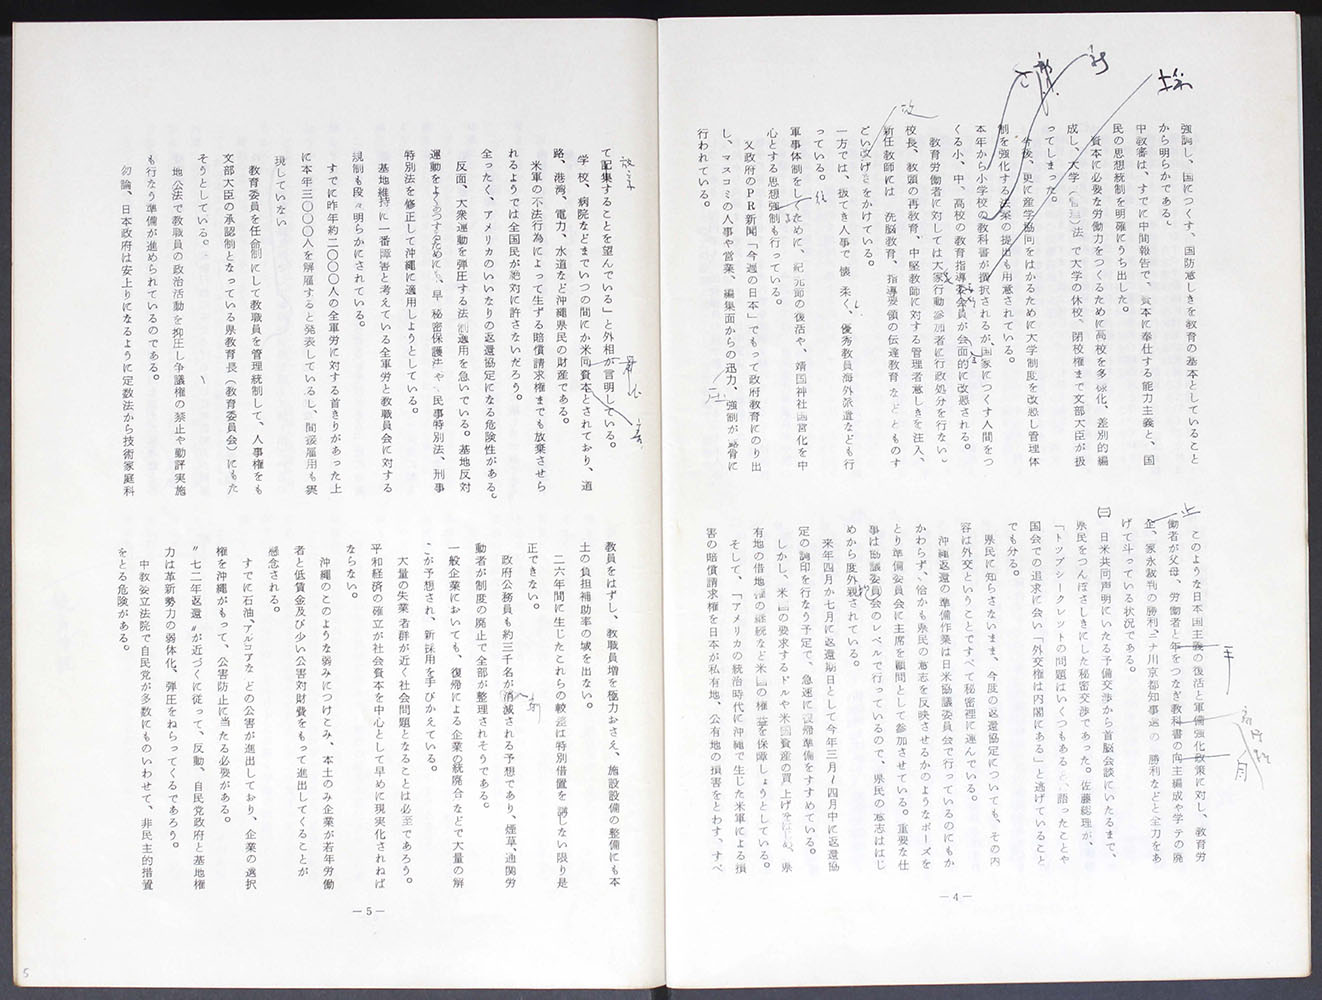 強調し、国につくす、国防意しきを教育の基本としていること
から明らかである。
中教審は、すでに中間報告で、資本に奉仕する能力主義と、国
民の思想統制を明確にうち出した。
資本に必要な労働力をつくるために高校を多様化、差別的編
成し、大学（管理）法で大学の休校、閉校権まで文部大臣が扱
ってしまった。
今後、更に産学協同をはかるために大学制度を改悪し管理体
制を強化する法案の提出も用意されている。
本年から小学校の教科書が撰択されるが、国家につくす人間をつ
くる小、中、高校の教育指導委会員が会面的に改悪される。
教育労働者に対しては大衆行動参加者に行政処分を行ない、
校長、教頭の再教育、中堅教師に対する管理者意しきを注入、
新任教師には 洗脳教育、指導要領の伝達教育 など とものす
ごい改げきをかけている。
一方では、抜てき人事で 懐 柔く、優秀教員海外派遣なども行
っている。
軍事体制をしくために、紀元節の復活や、靖国神社国営化を中
心とする思想強制も行っている。
又政府のＰＲ新聞「今週の日本」でもって政府教育にのり出
し、マスコミの人事や営業、編集面からの迅力、強制が露骨に
行われている。
このような日本国主義の復活と軍備強化政策に対し、教育労
働者が父母、労働者と年をつなぎ教科書の向主編成や学テの廃
企、家永裁判の勝利、ニナ川京都知事選の 勝利などと全力をあ
げて斗っている状況である。
㈡ 日米共同声明にいたる予備交渉から首脳会談にいたるまで、
県民をつんぼさじきにした秘密交渉であった。佐藤総理が、
「トップシークレットの問題はいくつもある」と語ったことや
国会での追求に会い「外交権は内閣にある」と逃げていること
でも分る。
県民に知らさないまま、今度の返還協定についても、その内
容は外交ということですべて秘密裡に運んでいる。
沖縄返還の準備作業は日米協議委員会で行っているのにもか
かわらず、恰かも県民の意志を反映させるかのようなポーズを
とり準備委員会に主席を顧問として参加させている。重要な仕
事は協議委員会のレベルで行っているので、県民の意志ははじ
めから度外視されている。
来年四月か七月に返還期日として今年三月〜四月中に返還協
定の調印を行なう予定で、急速に復帰準備をすすめている。
しかし、米国の要求するドルや米国資産の買上げをはじめ、県
有地の借地権の継続など米国の権益を保障しようとしている。
そして、「アメリカの統治時代に沖縄で生じた米軍による損
害の賠償請求権を日本が私有地、公有地の損害をとわす、すべ
－4－
て記集することを望んでいる」と外相が言明している。
学校、病院などまでいつの間にか米同費本とされており、道
路、港湾、電力、水道など沖縄県民の財産である。
米軍の不法行為によって生ずる賠償請求権までも放棄させら
れるようでは全国民が絶対に許さないだろう。
全ったく、アメリカのいいなりの返還協定になる危険性がある。
反面、大衆運動を弾圧する法制適用を急いでいる。基地反対
運動をよくあつするためにも、早 秘密保護法や、民事特別法、刑事
特別法を修正して沖縄に適用しようとしている。
基地維持に一番障害と考えている全軍労と教職員会に対する
規制も段々明らかにされている。
すでに昨年約二〇〇〇人の全軍労に対する首きりがあった上
に本年三〇〇〇人を解雇すると発表しているし、間接雇用も実
現していない
教育委員を任命制にして教職員を管理統制して、人事権をも
文部大臣の承認制となっている県教育長（教育委員会）にもた
そうとしている。
地公法で教職員の政治活動を抑圧し争議権の禁止や勤評実施
も行なう準備が進められているのである。
勿論、日本政府は安上りになるように定数法から技術家庭科
教員をはずし、教職員増を極力おさえ、施設設備の整備にも本
土の負担補助率の域を出ない。
二六年間に生じたこれらの較差は特別借置を 講じない限り是
正できない。
政府公務員も約三千名が消減される予想であり、煙草、通関労
働者が制度の廃止で全部が整理されそうである。
一般企業においても、復帰による企業の統廃合などで大量の解
こが予想され、新採用を手びかえている。
大量の失業者群が近く社会問題となることは必至であろう。
平和経済の確立が社会資本を中心として早めに現実化されねば
ならない。
沖縄のこのような弱みにつけこみ、本土のみ企業が若年労働
者と低賃金及び少い公害対財費をもって進出してくることが
懸念される。
すでに石油、アルコアな どの公害が進出しており、企業の選択
権を沖縄がもって、公害防止に当たる必要がある。
〃七二年返還〃が近づくに従って、反動、自民党政府と基地権
力は革新勢力の弱体化、弾圧をねらってくるであろう。
中教委立法院で自民党が多数にものいわせて、非民主的措置
をとる危険がある。
－5－
5